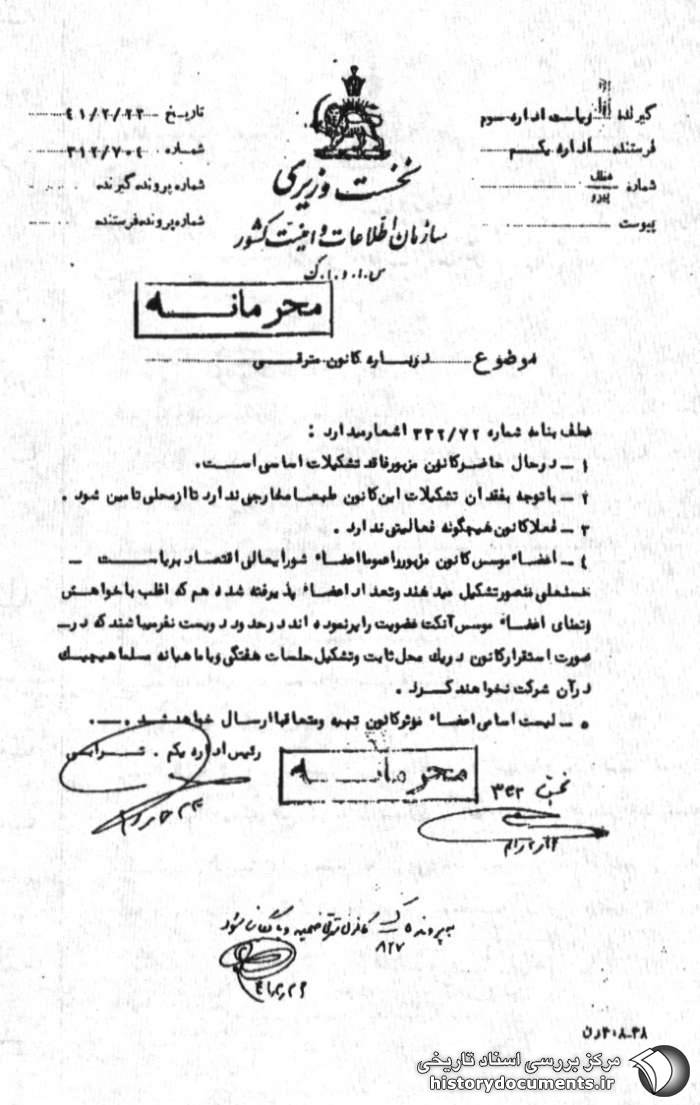 گیرنده ریاست اداره سوم
فرستنده اداره یکم
شماره عطف پیرو
پیوست
تاریخ ۴۱/۲/۲۳
شماره ۳۱۲/۷۰۴
شماره پرونده گیرنده
شماره پرونده فرستنده
نخست وزیری
سازمان اطلاعات و امنیت کشور
س.ا.و.ا.ک
محرمانه
موضوع درباره کانون مترقی
عطف بنامه شماره ۳۳۲/۷۲ اشعار میدارد :
۱ – در حال حاضر کانون مزبور فاقد تشکیلات اساسی است.
۲ – با توجه بفقدان تشکیلات این کانون طبعا مخارجی ندارد تا از محلی تامین شود .
۳ – فعلا کانون هیچگونه فعالیتی ندارد .
۴ – اعضاء موسس کانون مزبور را عموما اعضاء شورایعالی اقتصاد بریاست –
حسنعلی منصور تشکیل میدهند و تعداد اعضاء پذیرفته شده هم که اغلب با خواهش
و تمنای اعضاء موسس آنکت عضویت را پر نموده اند در حدود دویست نفر میباشند که در –
صورت استقرار کانون در یک محل ثابت و تشکیل جلسات هفتگی و یا ماهیانه مسلما هیچیک
در آن شرکت نخواهند کرد .
۵ – لیست اسامی اعضاء موثر کانون تهیه و متعاقبا ارسال خواهد شد .
رئیس اداره یکم .
محرمانه
بخش ۳۳۲
به پرونده ک کانون مترقی ضمیمه و بایگانی شود
۸۲۷
مرکز بررسی اسناد تاریخی
historydocuments.ir